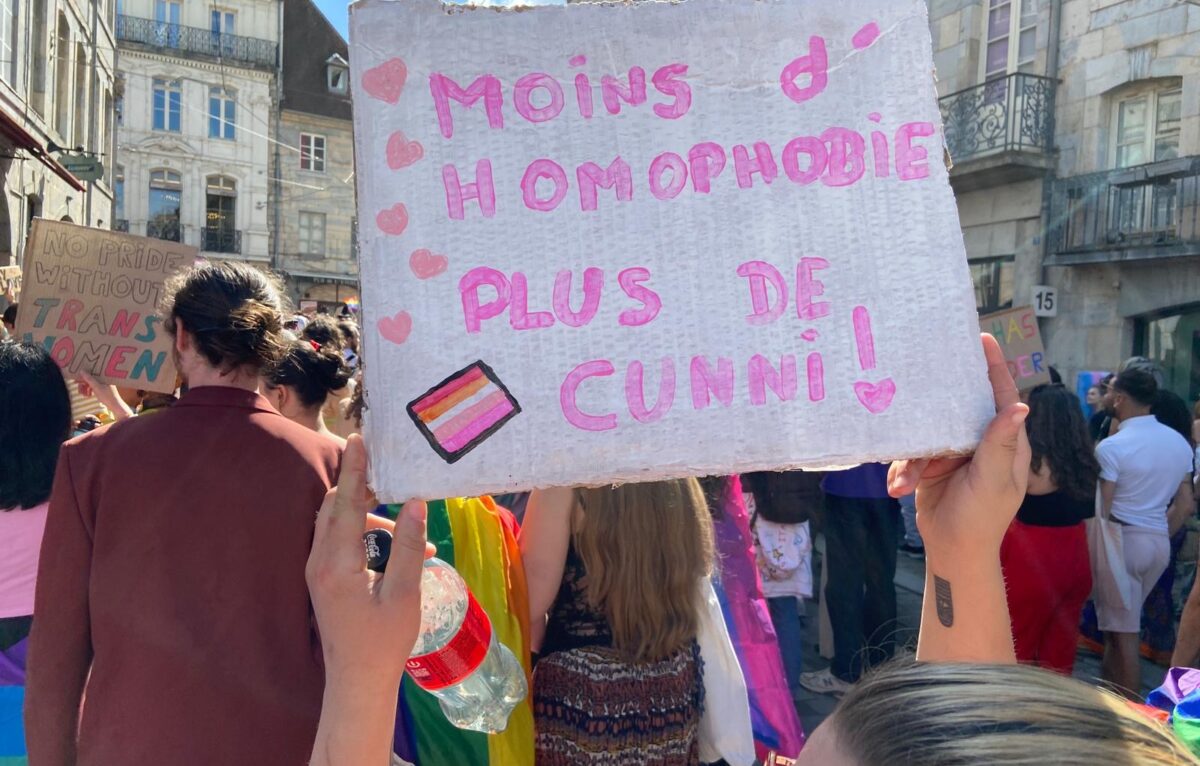 MOiNS d'
HOMOPHOBiE
PLUS DE
CUNNi !
NO PRIDE
WiTHOUT
TRANS
WOMEN
15
HAS
DER
Coca-Cola